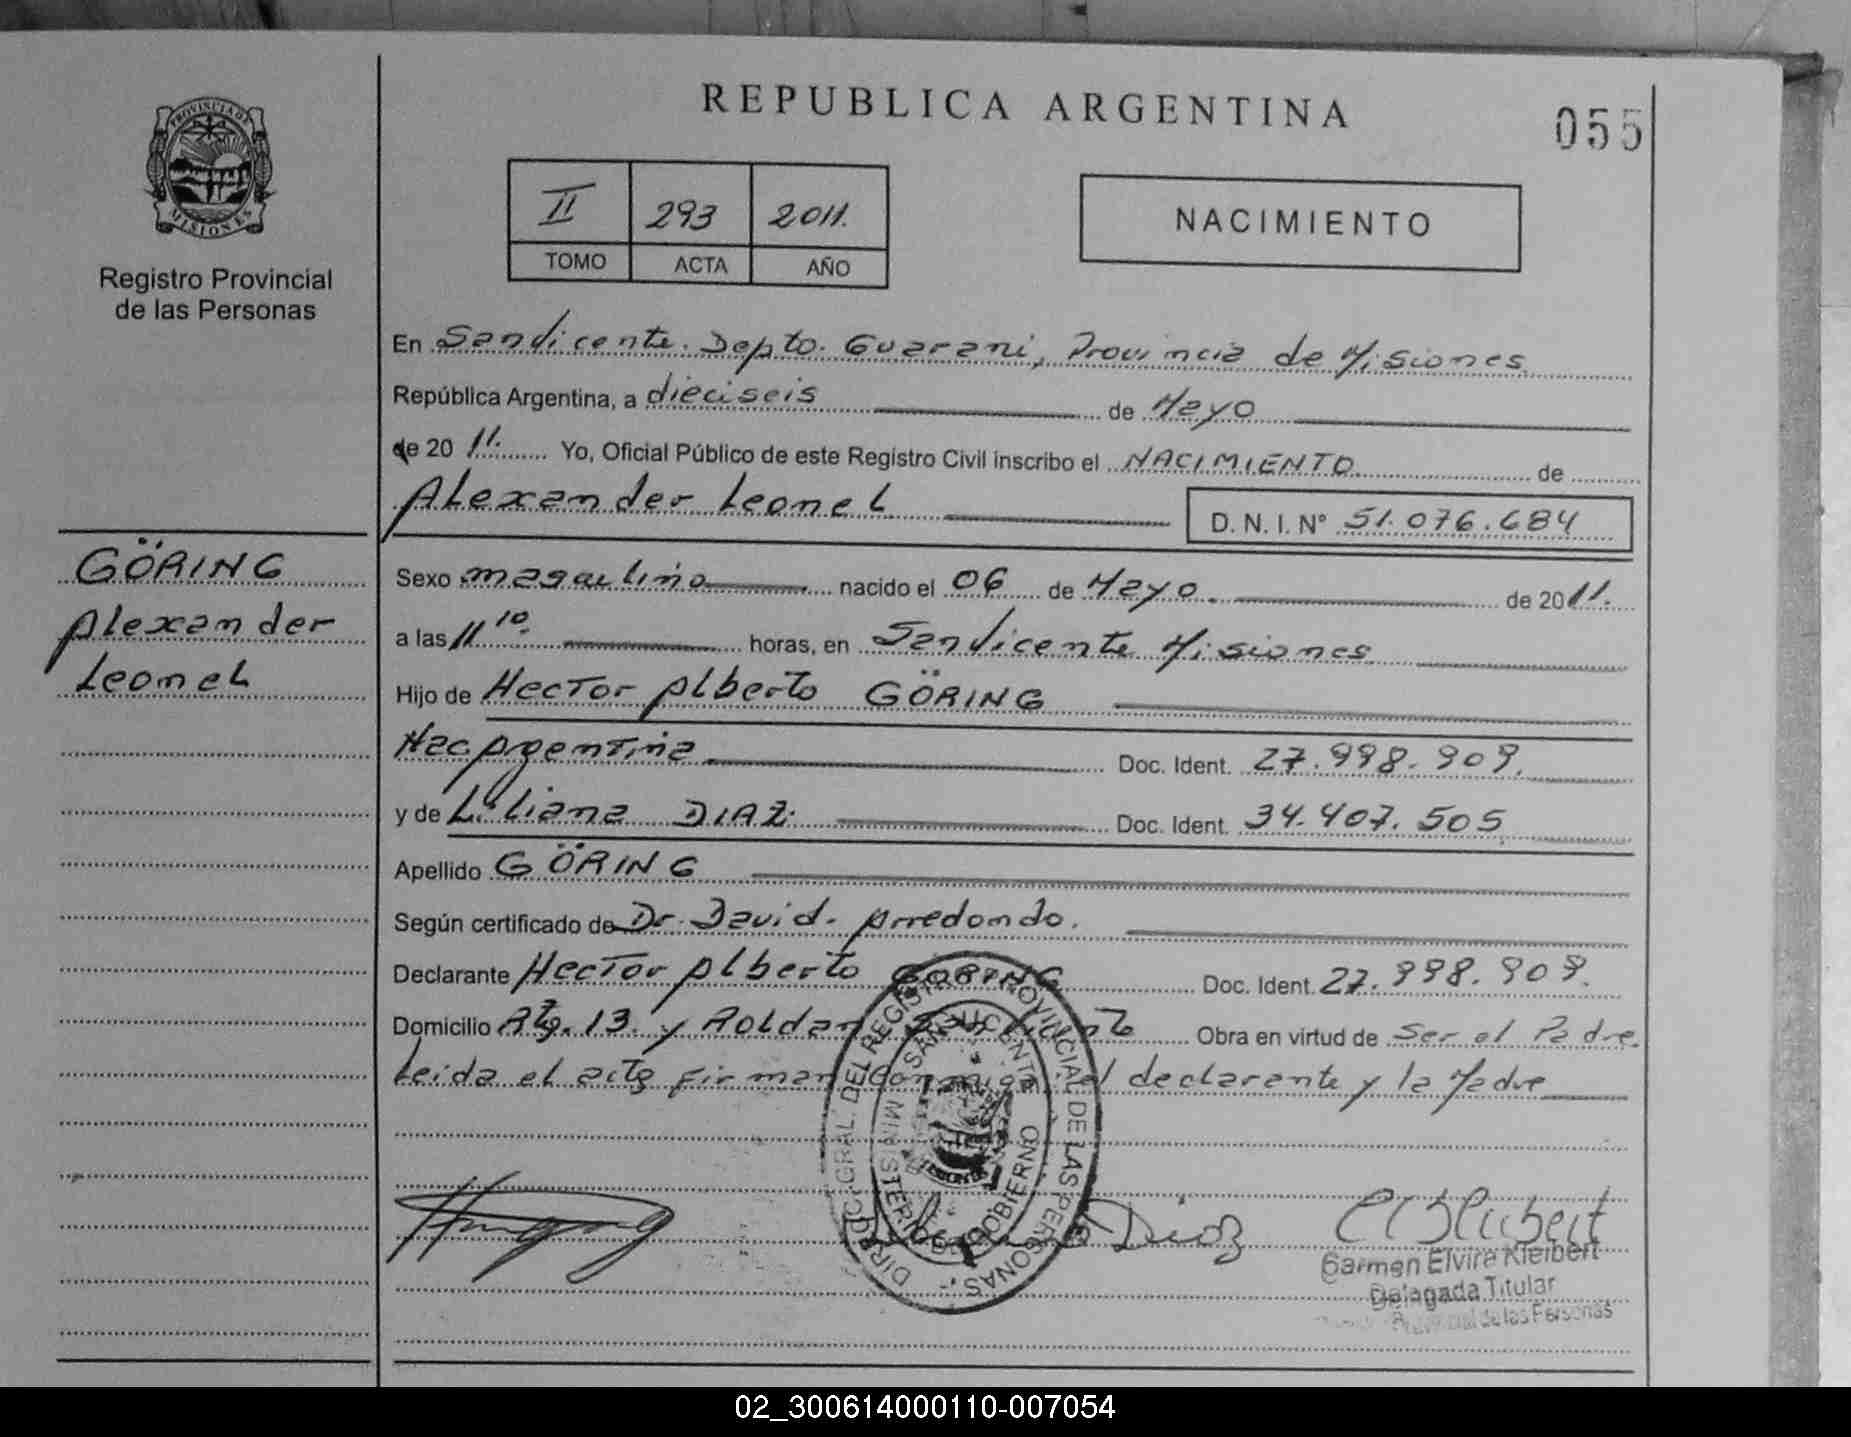 REPUBLICA ARGENTINA
055
PROVINCIA DE
MISIONES
Registro Provincial
de las Personas
II 293 2011.
TOMO ACTA AÑO
NACIMIENTO
En San Vicente. Depto. Guarani, Provincia de Misiones
República Argentina, a dieciseis de Mayo
de 20 11. Yo, Oficial Público de este Registro Civil inscribo el NACIMIENTO de
Alexander Leonel
D. N. I. Nº 51.076.684
GÖRING
Alexander
Leonel
Sexo masculino nacido el 06 de Mayo de 2011.
a las 11 10. horas, en San Vicente Misiones
Hijo de Hector Alberto GÖRING
Nac Argentina Doc. Ident. 27.998.909.
y de Liliana DIAZ. Doc. Ident. 34.407.505
Apellido GÖRING
Según certificado de Dr. David. Arredondo.
Declarante Hector Alberto GÖRING Doc. Ident. 27.998.909.
Domicilio 13. y Roldan San Vicente Obra en virtud de Ser el Padre.
Leida el acta firman conmigo el declarante y la Madre
DIRECC. GRAL. DEL REGISTRO PROVINCIAL DE LAS PERSONAS
SAN VICENTE
MINISTERIO DE GOBIERNO
Diaz
Carmen Elvira Kleibert
Delegada Titular
de las Personas
02_300614000110-007054